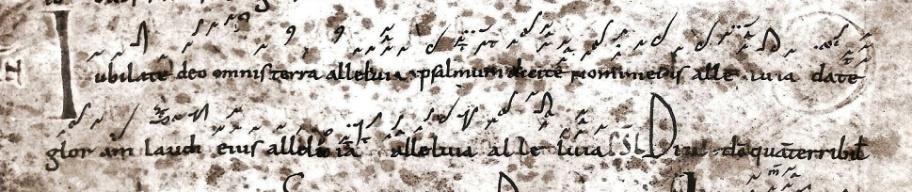 Iubilate deo omnis terra alleluia psalmum dicite nomini eius alle luia date
gloriam laudi eius alleluia alleluia al le luia PSL Dicite dō quā terribil